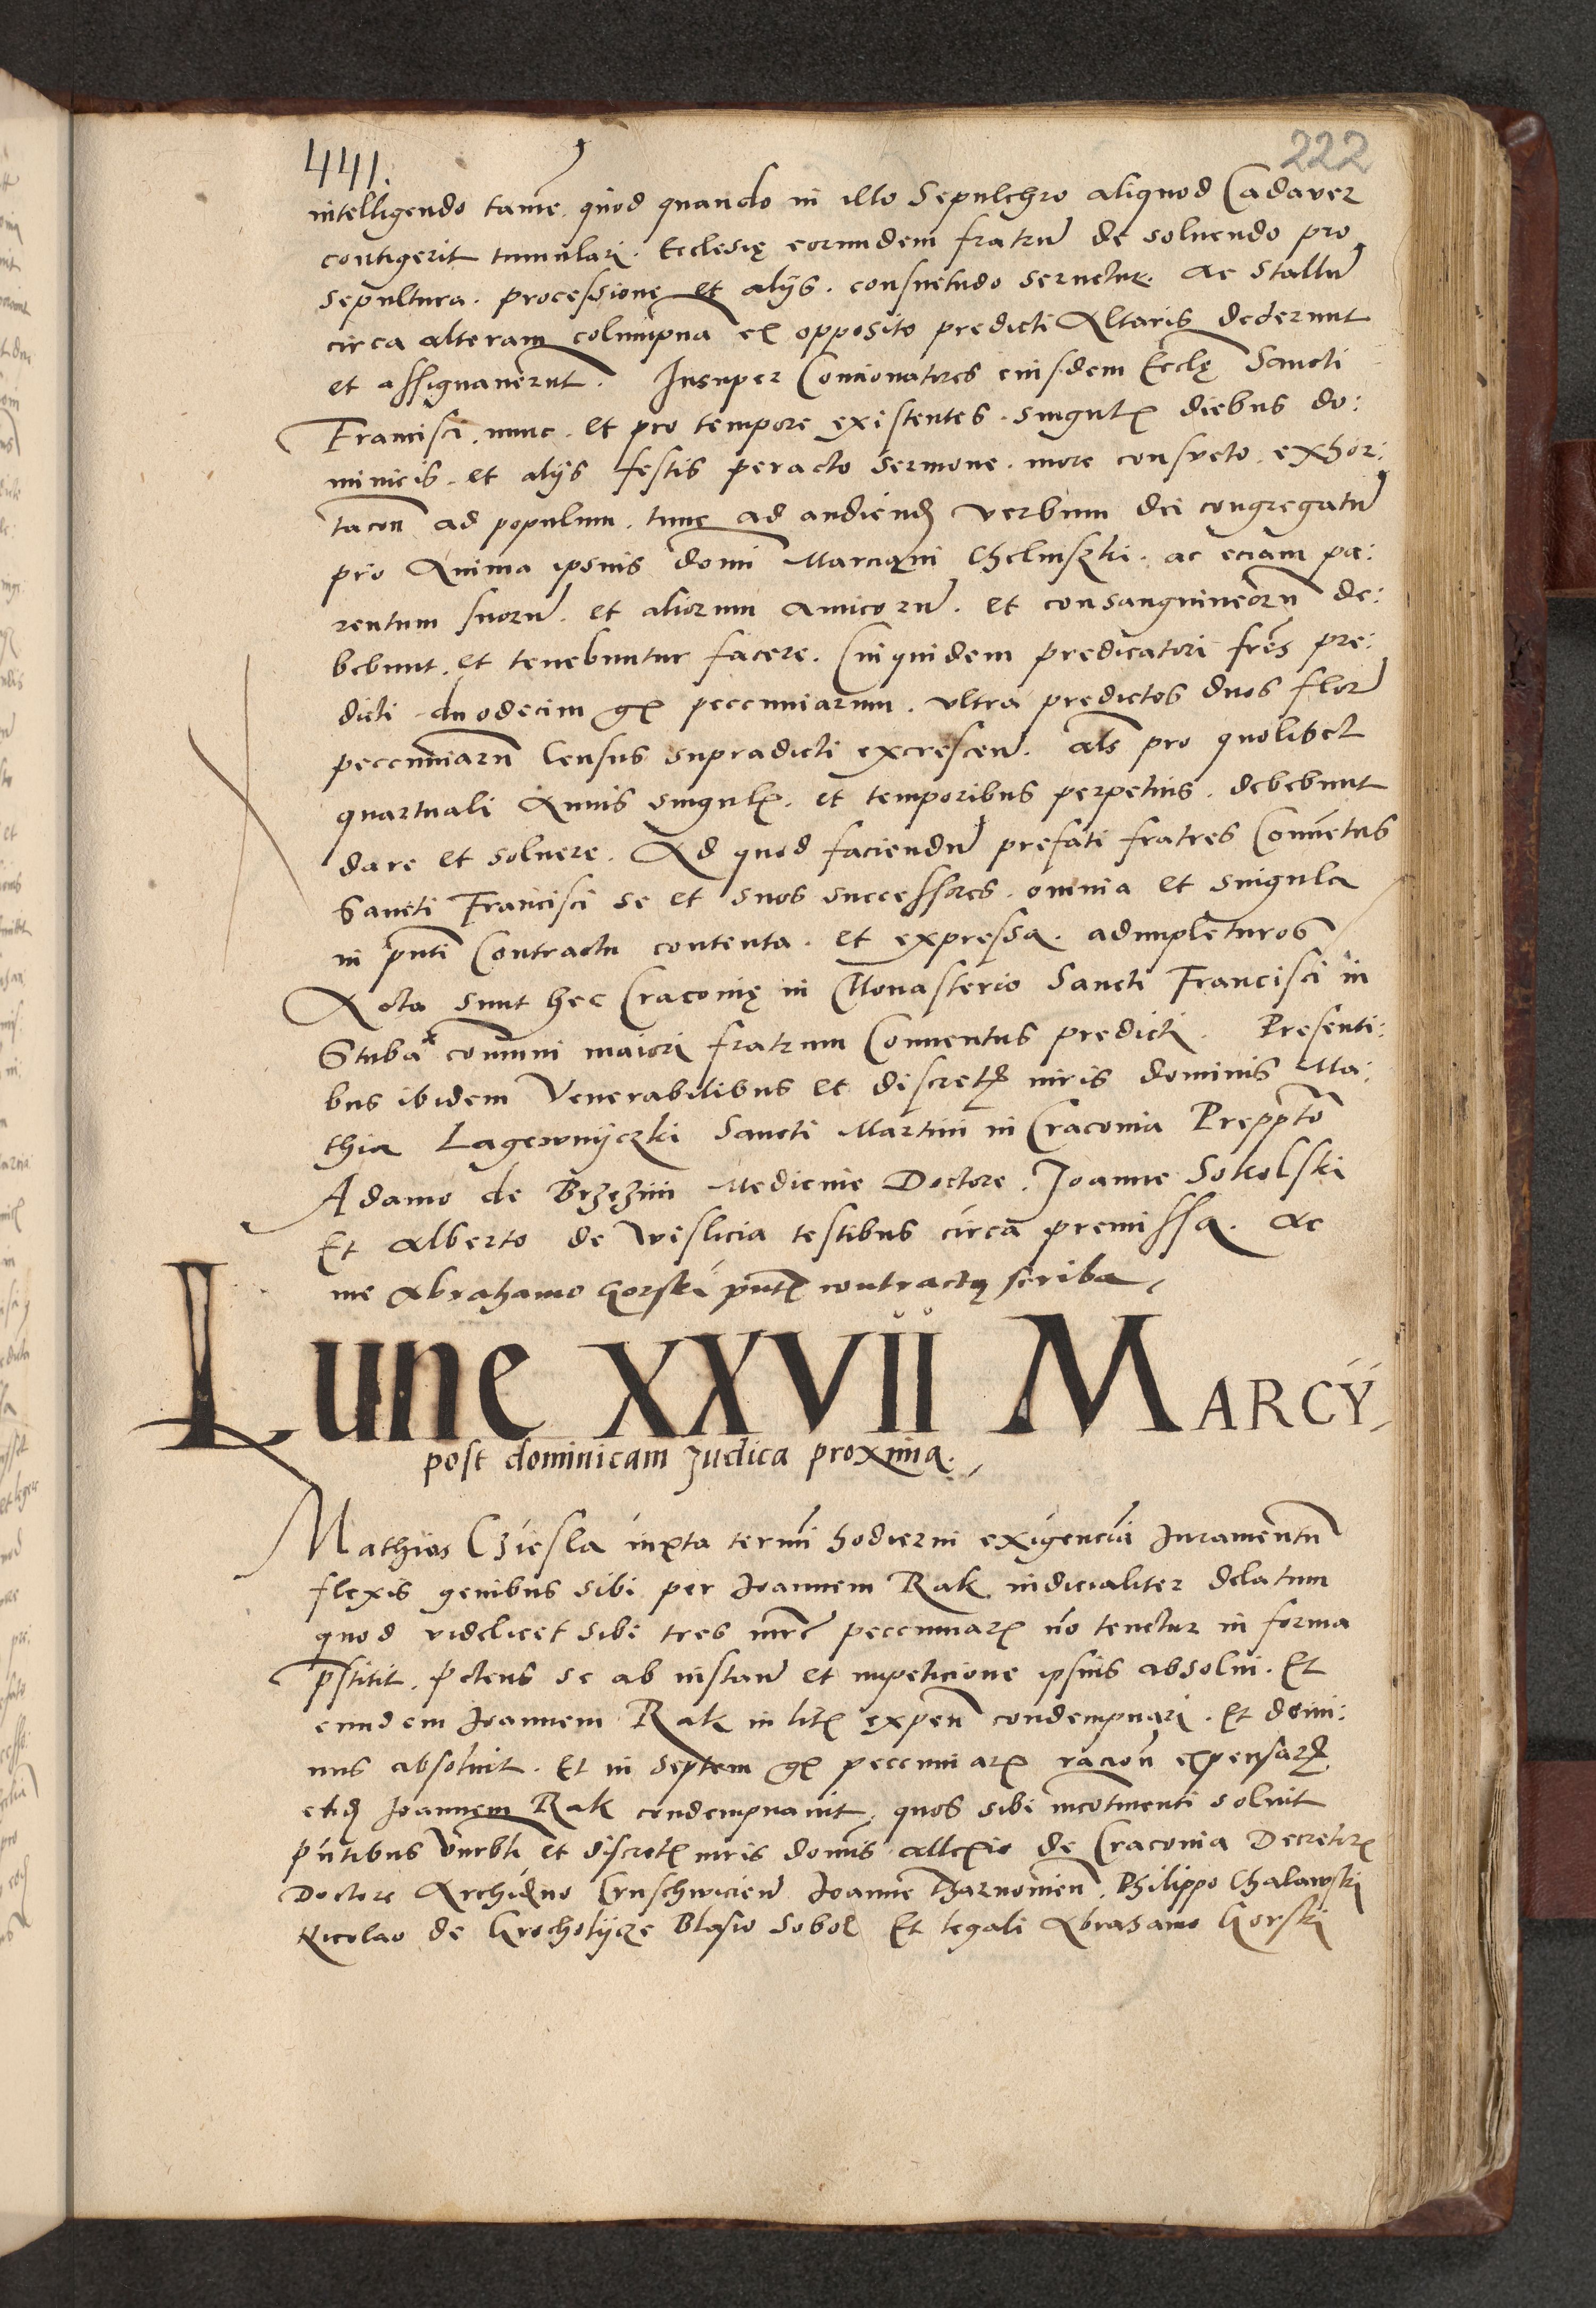 441.
222
intelligendo tamē. quod quando in illo Sepulchro aliquod Cadaver
contigerit tumulari. Ecclesię eorundem fratrū de soluendo pro
sepultura. processione et alijs. consuetudo seruetur. Ac Stallū
circa alteram columpnā ex opposito predicti Altaris dederunt
et assignauerūt. Insuper Concionatores eiusdem Eccłę Sancti
Francisci. nunc. et pro tempore existentes. singulꝭ diebus do:
minicis. et alijs festis peracto sermone. more consueto. exhor:
tacoń ad populum. tunc ad audiendꝭ verbum dei congregatū
pro Anima ipsius domī Marciani Chelmszki. ac eciam pa:
rentum suorū. et aliorum amicorū. et consanguineorū de:
bebunt. et tenebuntur facere. Cuiquidem predicatori fr̄es pre:
dicti duodecim gꝭ peccuniarum. vltra predictos duos flor̄
peccuniarū Census supradicti excrescen̄. al̄s pro quolibet
quartuali Annis singulꝭ. et temporibus perpetuis. debebunt
dare et soluere. Ad quod faciendū prefati fratres Conuētus
Sancti Francisci se et suos successores. omnia et singula
in pn̄ti Contractu contenta. et expressa. adimpleturos
Acta sunt hec Cracouię in Monasterio Sancti Francisci in
Stuba com̄uni maiori fratrum Conuentus predicti. Presenti:
bus ibidem Venerabilibus et discretꝭ viris dominis Ma:
thia Lagewnyczki Sancti Martini in Cracouia Prep̄pto
Adamo de Brzęzini Medicine Doctore. Joanne Sokolski
Et Alberto de Wislicia testibus circa premissa. Ac
me Abrahamo Gorski pn̄tꝭ contractꝰ scriba
Lune XXVII MARCŸ
post dominicam Judica proxima.
Mathias Cziesla iuxta term̄i hodierni exigenciā Juramentū
flexis genibus sibi per Joannem Rak iudicialiter delatum
quod videlicet sibi tres mrc̄ peccuniarꝭ nō tenetur in forma
p̄stitit. petens se ab instan̄ et impeticione ipsius absolui. Et
eundem Joannem Rak in litꝭ expen̄ condempnari. Et domi:
nus absoluit. Et in septem gꝭ peccuniarꝭ racion̄ expensarꝭ
eūdꝭ Joannem Rak condempnauit, quos sibi incontinenti soluit
pn̄tibus Vnrbłi et discretꝭ viris domīs Allexio de Cracouia Decretorꝭ
Doctore Archidn̄o Cruschwicien̄ Joanne Tharnowien̄. Philippo Chalawski
Nicolao de Grocholycze Blasio Sobol Et legali Abrahamo Gorski